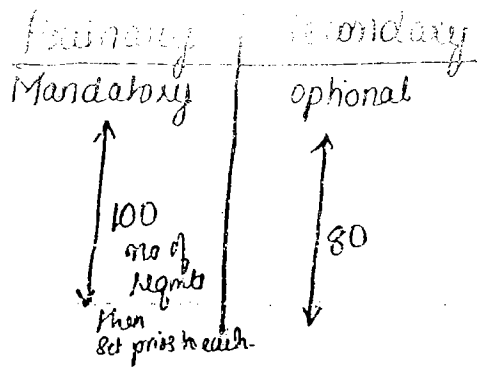 Primary Secondary
Mandatory optional
100
no of
reqmts
80
then
set prios to each.